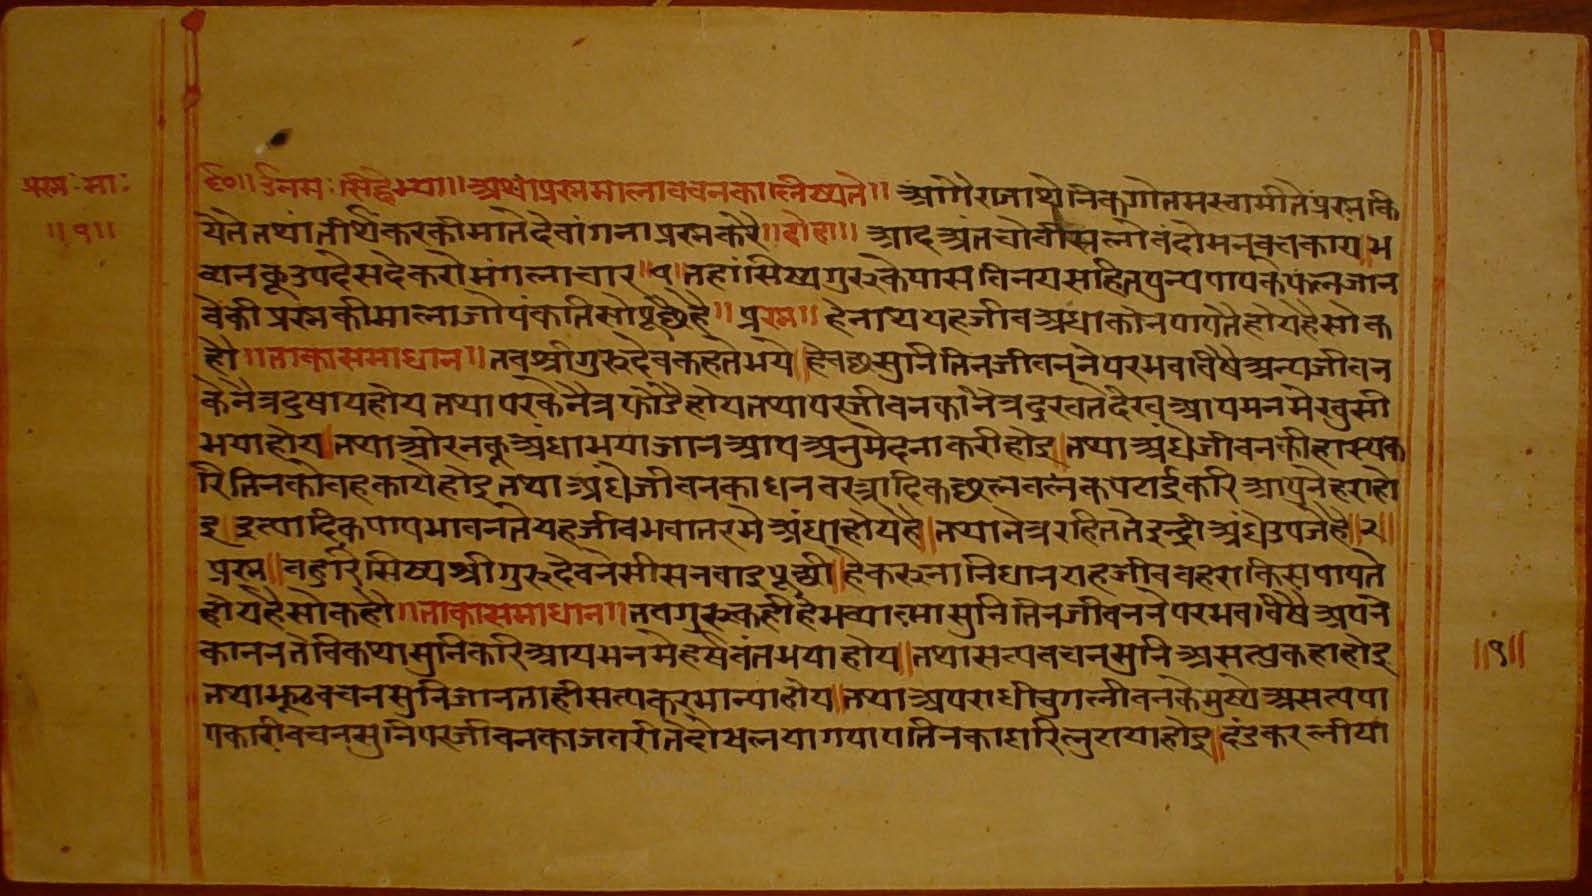 प्रस्न: मा:
॥१॥
ए६०॥ उँनम: सिद्धेभ्या॥ अथाप्रस्नमालाबचनका लीष्यते॥ आगैराजाश्रेनिकगोतमस्वामीतेंप्रस्नकि
येतेतथांतीर्थंकरकीमातैदेवांगनाप्रस्नकरै॥दोहा॥ आदअंतचोवीसलोबंदोमनबचकाय॥भ
व्यनकूउपदेसदेकरोमंगलाचार॥१॥तहांसिष्यगुरुकेपासविनयसहितपुन्यपापकेफलजान
वेकीप्रस्नकीमालाजोपंकतिसोपूछैहै॥प्रस्न॥हेनाथयहजीवअंधाकोनपापतैहोयहैसोक
हौ॥ताकासमाधान॥तबश्रीगुरुदेवकहतेभये॥हेबछसुनितिनजीवननेपरभवविषैअन्यजीवन
केनैत्रदुषायहोयतथापरकेनैत्रफोडैहोयतथापरजीवनकांनेत्रदुखतेदेखआपमनमेखुसी
भयाहोय॥तथाऔरनकूअंधाभयाजानआपअनुमेदनाकरीहोइ॥तथाअंधेजीवनकीहास्यक
रितिनकोवहकायेहोइतथाअंधेजीवनकाधनवस्त्रादिकछलबलकपटाईकरिआपुनेहराहो
इ॥इत्यादिकपापभावनतेयहजीवभवातरमेअंधाहोयहै॥तथानेत्ररहिततेइन्द्रीअंधेउपजेहै॥२॥
प्रस्न॥बहुरिसिष्यश्रीगुरुदेवनेसीसनवाइपूछी॥हेकरुनानिधानयहजीवबहराकिसपापते
होयहैसोकहौ॥ताकासमाधान॥तबगुरुकहीहेभव्यात्मासुनितिनजीवननेपरभवविषैअपने
काननतेविकथासुनिकरिआयमनमेहर्सवंतभयाहोय॥तथासत्यबचनसुनिअसत्यकहाहोइ
तथाझूठबचनसुनिजानताहीसत्यकरमान्याहोय॥तथाअपराधीचुगलीवनकेमुष्येअसत्यपा
पकारीबचनसुनिपरजीवनकाजबरीतेदोषलयागपापतिनकाघरिलुटायाहोइ॥दंडकरलीया
॥१॥